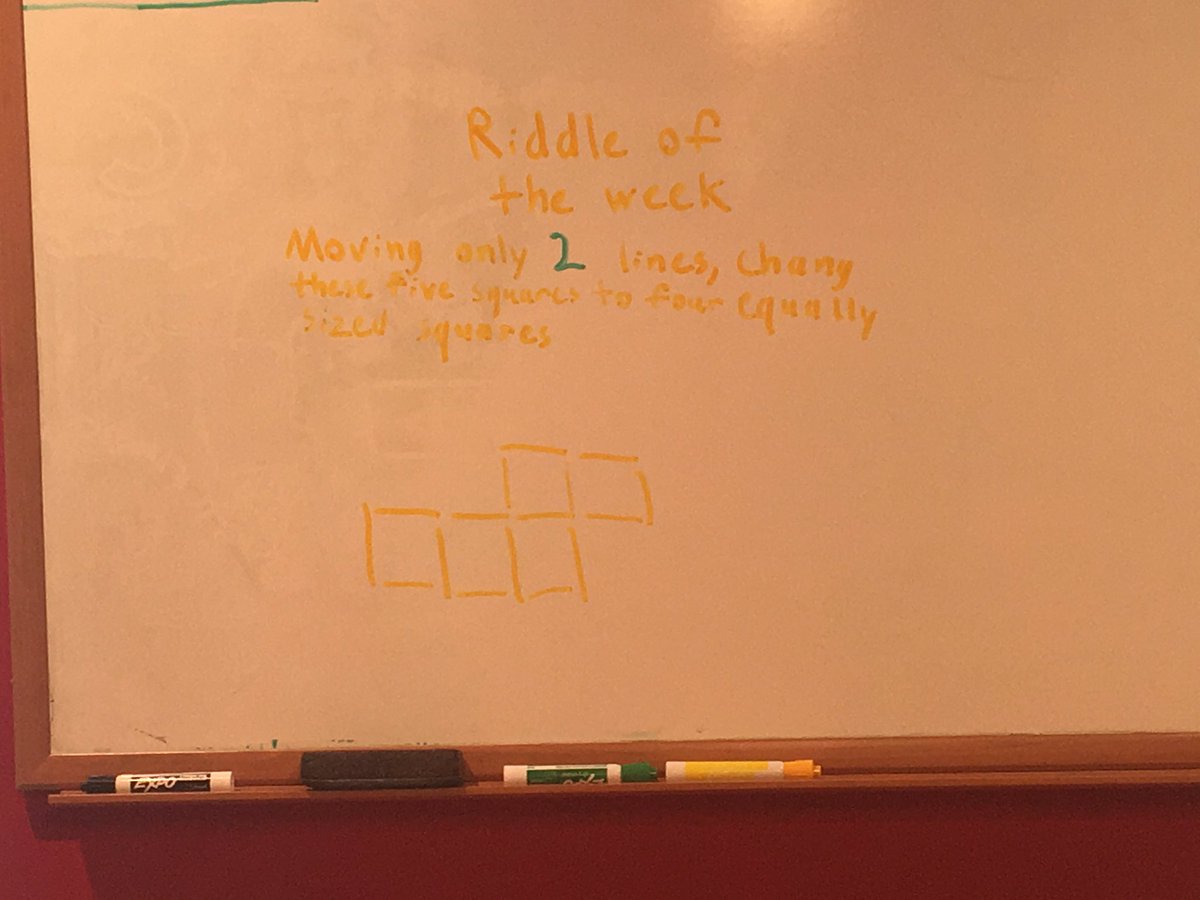 Riddle of
the week
Moving only 2 lines, Chang
these five squares to four equally
sized squares
EXPO
EXPO